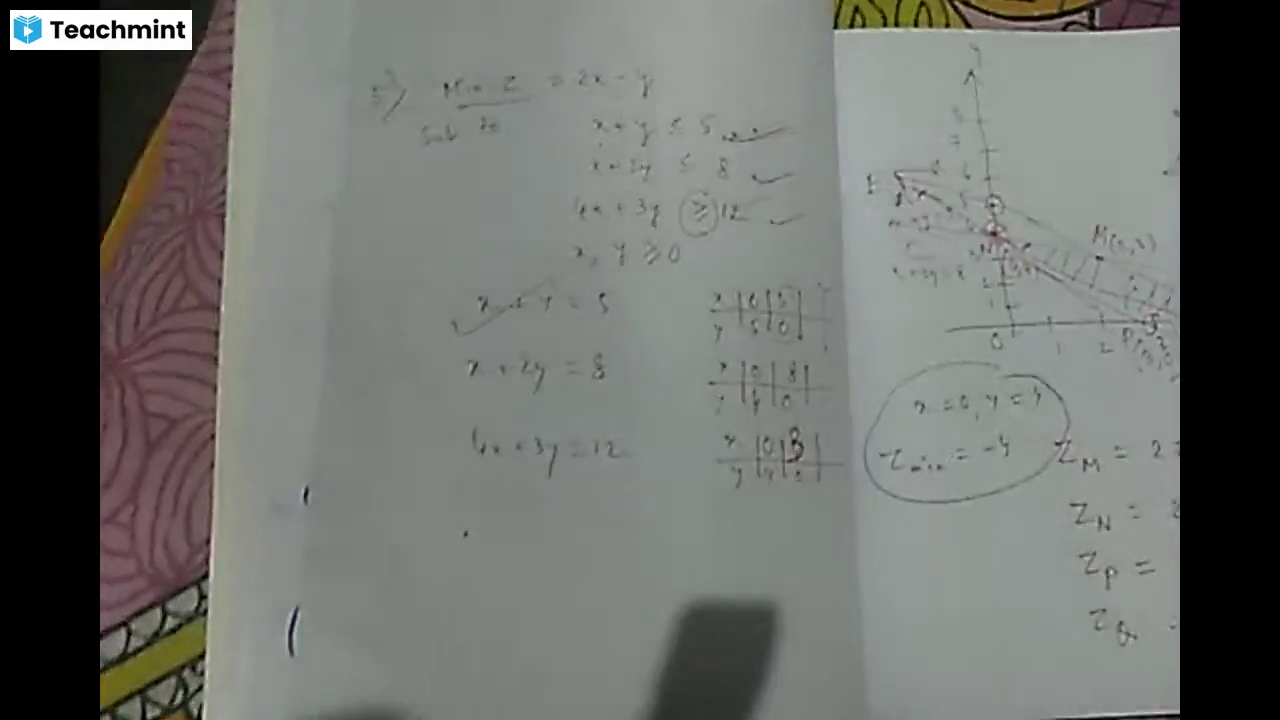 Teachmint
Min Z = 2x - y
Sub to
x + y ≤ 5
x + 2y ≤ 8
4x + 3y ≥ 12
x, y ≥ 0
x + y = 5
x | 0 | 5 |
y | 5 | 0 |
x + 2y = 8
x | 0 | 8 |
y | 4 | 0 |
4x + 3y = 12
x | 0 | 3 |
y | 4 | 0 |
6
5
2
1
0 1 2
x + 2y = 8
x = 0, y = 4
Z min = -4
Z M = 2
Z N =
Z P =
Z Q